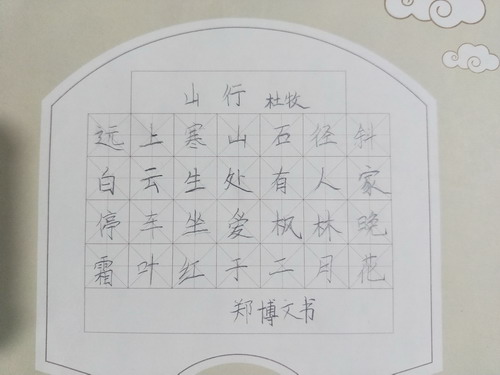 山行 杜牧
远上寒山石径斜
白云生处有人家
停车坐爱枫林晚
霜叶红于二月花
郑博文书